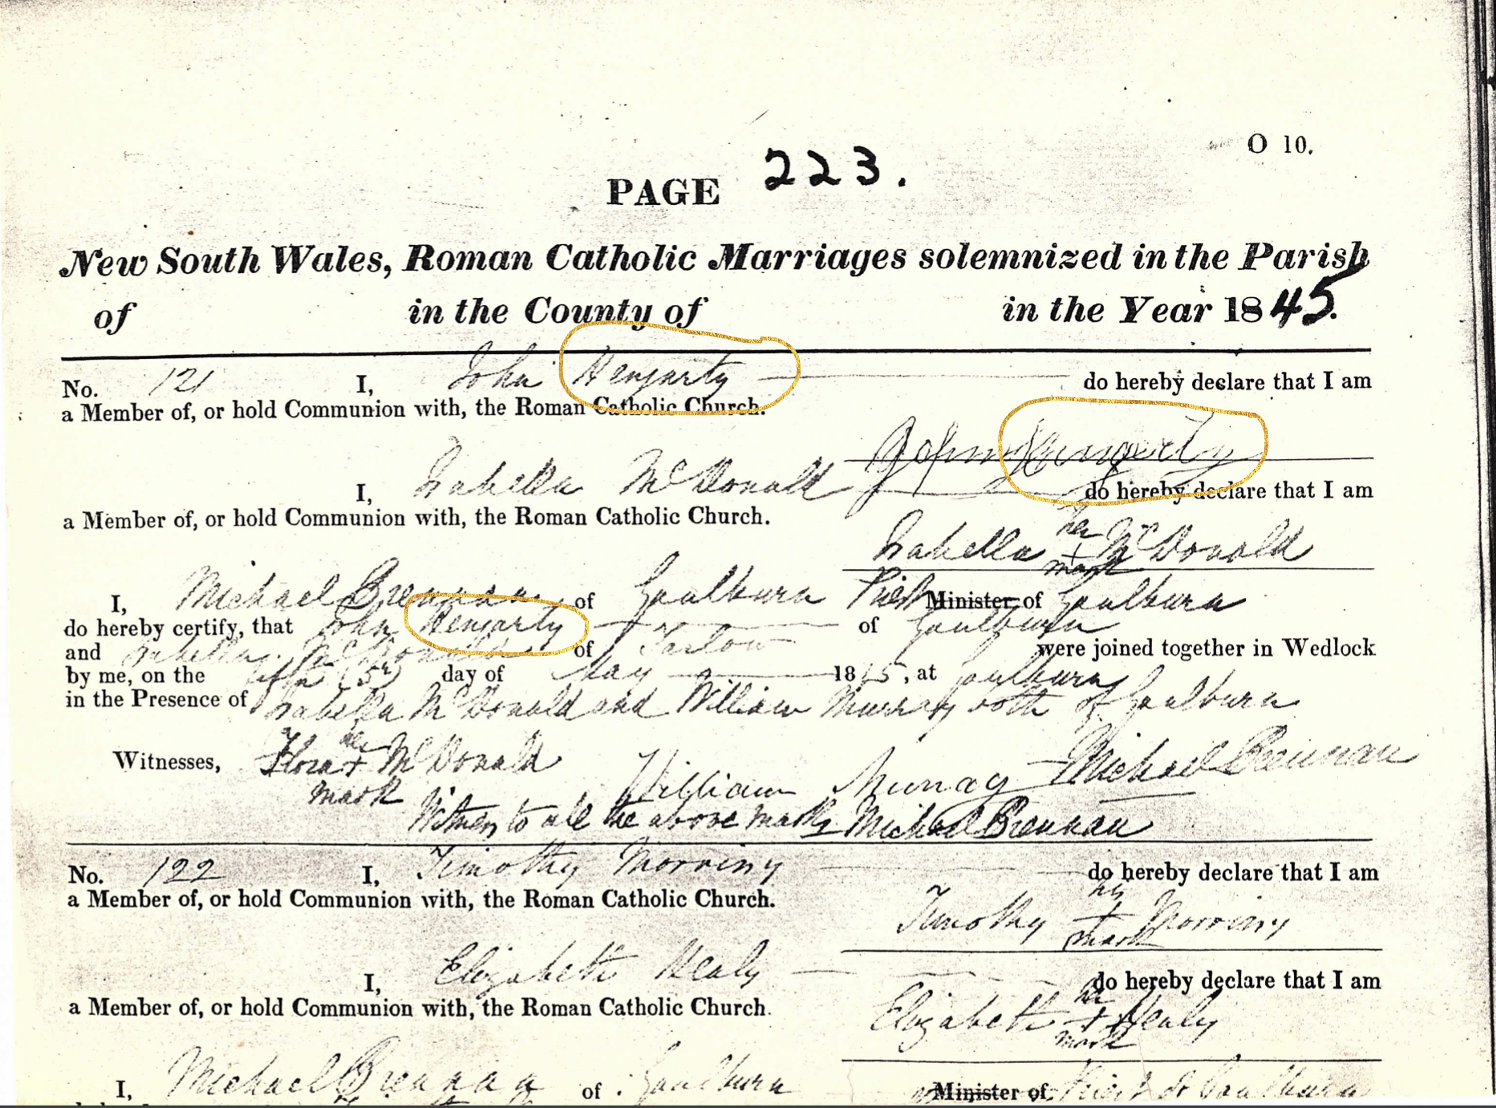 O 10.
PAGE 223.
New South Wales, Roman Catholic Marriages solemnized in the Parish
of in the County of in the Year 1845.
No. 121 I, John Hengarty do hereby declare that I am
a Member of, or hold Communion with, the Roman Catholic Church.
John
I, Isabella McDonald do hereby declare that I am
a Member of, or hold Communion with, the Roman Catholic Church.
Isabella her + mark McDonald
I, Michael Brennan of Goulburn Priest Minister of Goulburn
do hereby certify, that John Hengarty of Goulburn
and Isabella McDonald of were joined together in Wedlock
by me, on the fifth (5th) day of May 1845, at Goulburn
in the Presence of Isabella McDonald and William Murray both of Goulburn
Witnesses, Flora her + mark McDonald William Murray Michael Brennan
Witness to all the above marks Michael Brennan
No. 122 I, Timothy Morriny do hereby declare that I am
a Member of, or hold Communion with, the Roman Catholic Church.
Timothy his + mark Morriny
I, Elizabeth Healy do hereby declare that I am
a Member of, or hold Communion with, the Roman Catholic Church.
Elizabeth her + mark Healy
I, Michael Brennan of Goulburn Minister of Priest of Goulburn